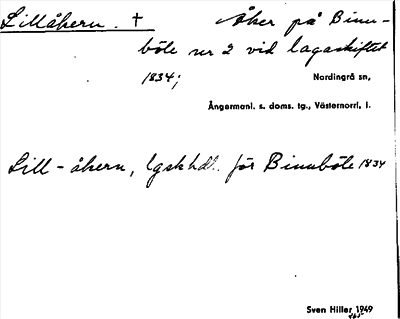 Lillåkern. † Åker på Binn-
böle nr 2 vid lagaskiftet
1834;
Nordingrå sn,
Ångermanl. s. doms. tg., Västernorrl, l.
Lill-åkern, lgskhdl. för Binnböle 1834
Sven Hiller 1949